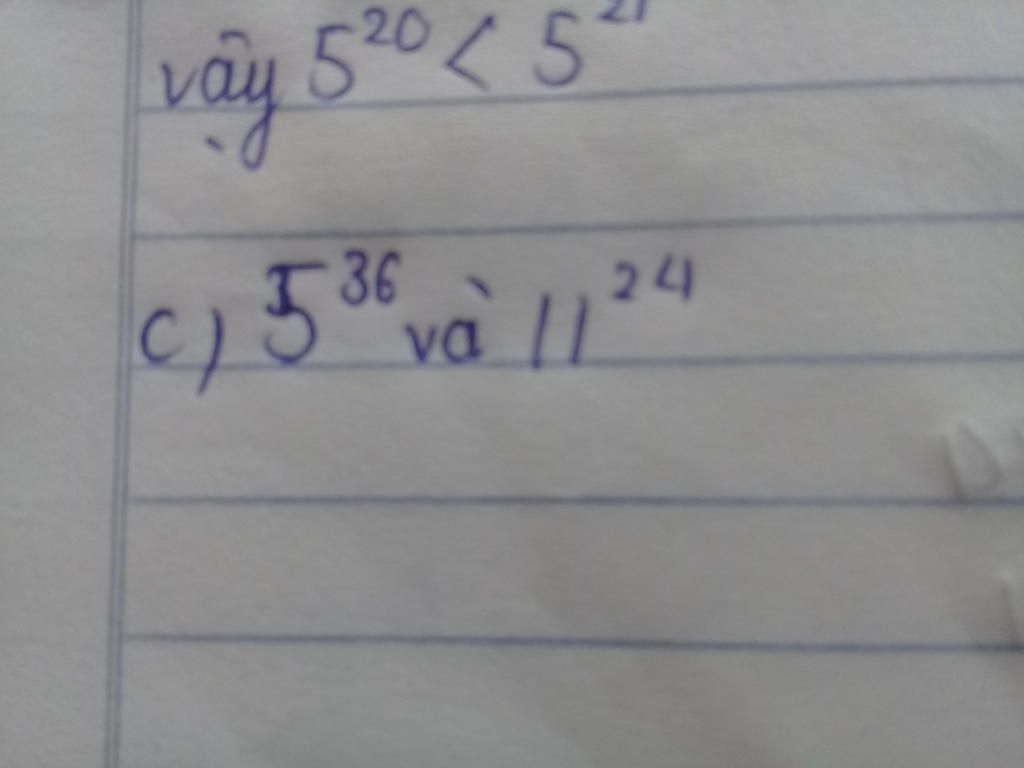 vậy 5²⁰ < 5²¹
c) 5³⁶ và 11²⁴